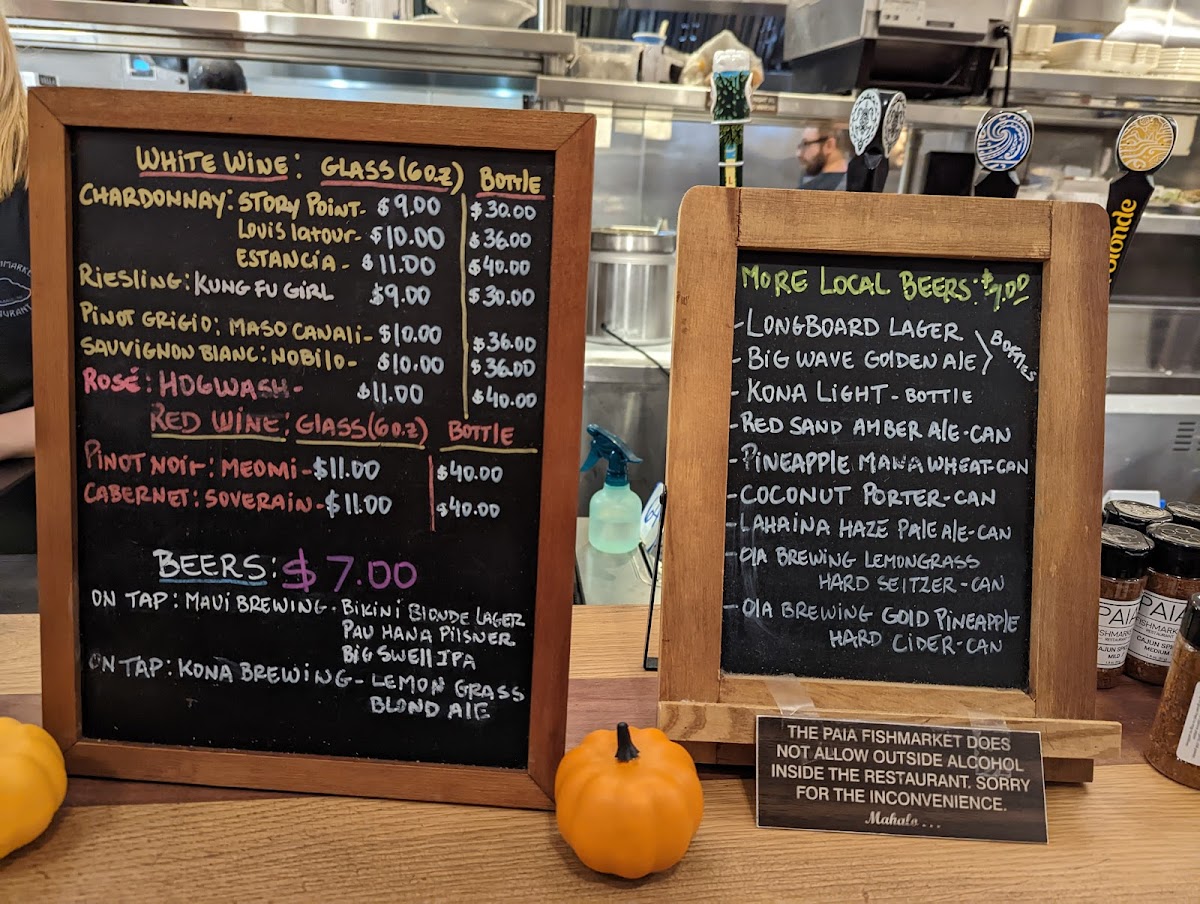 WHITE WINE: GLASS (6 OZ) BOTTLE
CHARDONNAY: STORY POINT - $9.00 $30.00
LOUIS LATOUR - $10.00 $36.00
ESTANCIA - $11.00 $40.00
RIESLING: KUNG FU GIRL $9.00 $30.00
PINOT GRIGIO: MASO CANALI - $10.00 $36.00
SAUVIGNON BLANC: NOBILO - $10.00 $36.00
ROSÉ: HOGWASH - $11.00 $40.00
RED WINE: GLASS (6 OZ) BOTTLE
PINOT NOIR: MEOMI - $11.00 $40.00
CABERNET: SOVERAIN - $11.00 $40.00
BEERS: $7.00
ON TAP: MAUI BREWING - BIKINI BLONDE LAGER
PAU HANA PILSNER
BIG SWELL IPA
ON TAP: KONA BREWING - LEMON GRASS
BLOND ALE
MORE LOCAL BEERS: $7.00
- LONGBOARD LAGER
- BIG WAVE GOLDEN ALE
BOTTLES
- KONA LIGHT - BOTTLE
- RED SAND AMBER ALE - CAN
- PINEAPPLE MANA WHEAT - CAN
- COCONUT PORTER - CAN
- LAHAINA HAZE PALE ALE - CAN
- OLA BREWING LEMONGRASS
HARD SEITZER - CAN
- OLA BREWING GOLD PINEAPPLE
HARD CIDER - CAN
THE PAIA FISHMARKET DOES
NOT ALLOW OUTSIDE ALCOHOL
INSIDE THE RESTAURANT. SORRY
FOR THE INCONVENIENCE.
Mahalo ...
blonde
PAIA
FISHMARKET
RESTAURANT
CAJUN SPICE
MILD
PAIA
FISHMARKET
RESTAURANT
CAJUN SPICE
MEDIUM